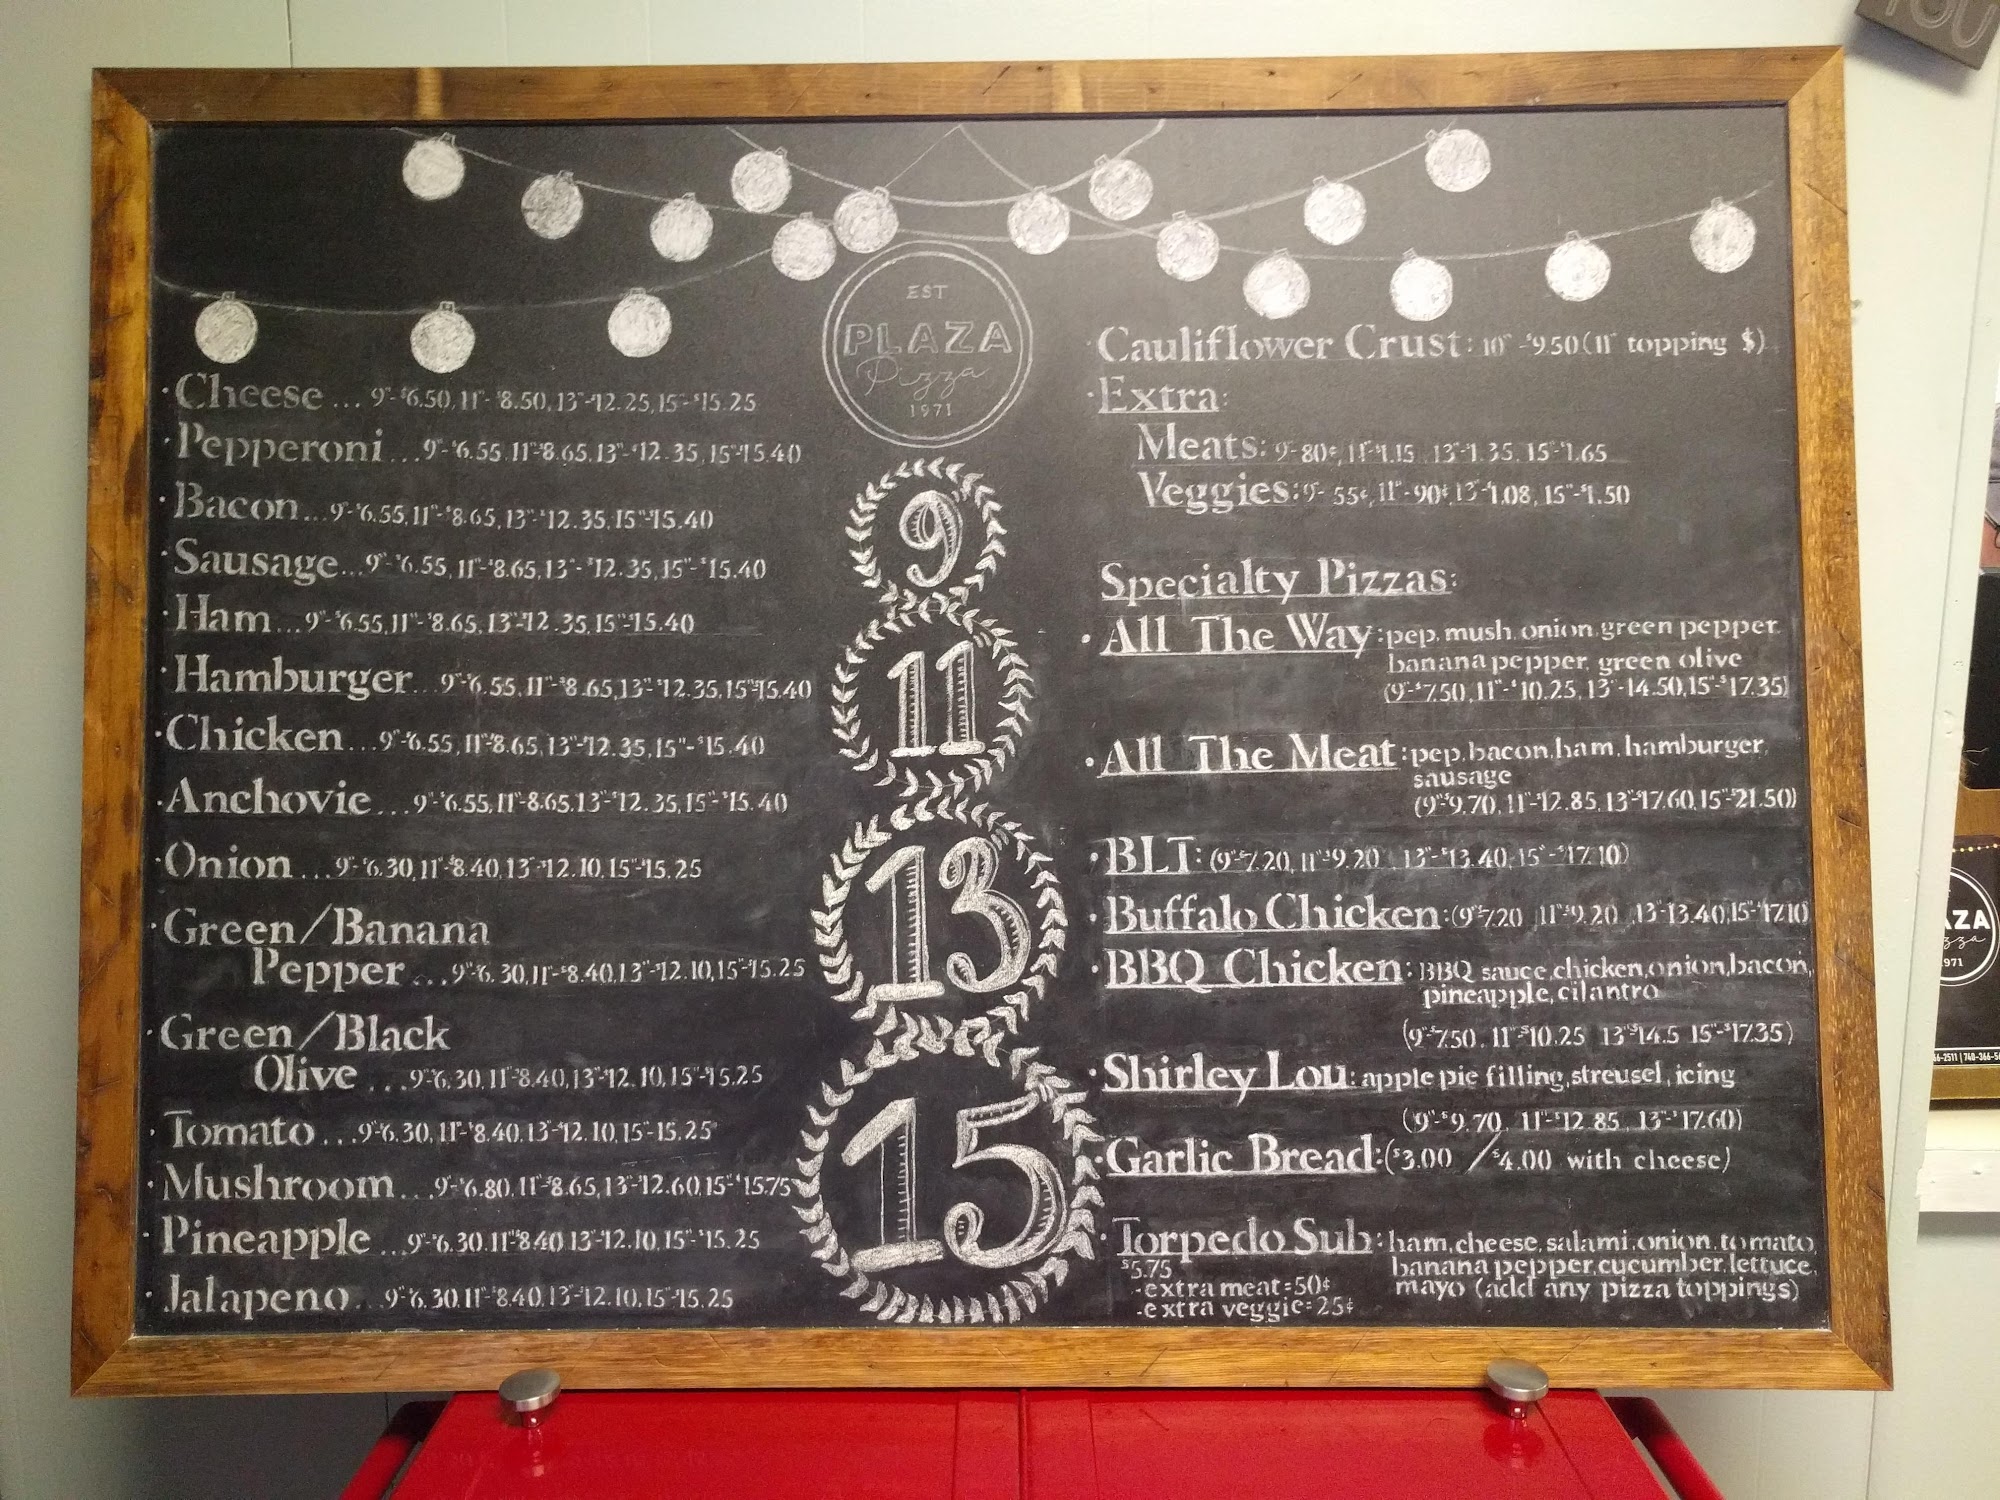 YOU
EST
PLAZA
Pizza
1971
· Cheese ... 9"-$6.50, 11"-$8.50, 13"-$12.25, 15"-$15.25
· Pepperoni ... 9"-$6.55, 11"-$8.65, 13"-$12.35, 15"-$15.40
· Bacon ... 9"-$6.55, 11"-$8.65, 13"-$12.35, 15"-$15.40
· Sausage ... 9"-$6.55, 11"-$8.65, 13"-$12.35, 15"-$15.40
· Ham ... 9"-$6.55, 11"-$8.65, 13"-$12.35, 15"-$15.40
· Hamburger ... 9"-$6.55, 11"-$8.65, 13"-$12.35, 15"-$15.40
· Chicken ... 9"-$6.55, 11"-$8.65, 13"-$12.35, 15"-$15.40
· Anchovie ... 9"-$6.55, 11"-8.65, 13"-$12.35, 15"-$15.40
· Onion ... 9"-$6.30, 11"-$8.40, 13"-$12.10, 15"-$15.25
· Green/Banana
Pepper ... 9"-$6.30, 11"-$8.40, 13"-$12.10, 15"-$15.25
· Green/Black
Olive ... 9"-$6.30, 11"-$8.40, 13"-$12.10, 15"-$15.25
· Tomato ... 9"-$6.30, 11"-$8.40, 13"-$12.10, 15"-15.25
· Mushroom ... 9"-$6.80, 11"-$8.65, 13"-$12.60, 15"-$15.75
· Pineapple ... 9"-$6.30. 11"-$8.40 13"-$12.10, 15"-$15.25
· Jalapeno ... 9"-$6.30, 11"-$8.40, 13"-$12.10, 15"-$15.25
9
11
13
15
· Cauliflower Crust: 10"-$9.50 (11" topping $)
· Extra:
Meats: 9"-80¢, 11"-$1.15, 13"-$1.35, 15"-$1.65
Veggies: 9"-55¢, 11"-90¢, 13"-$1.08, 15"-$1.50
Specialty Pizzas:
· All The Way: pep, mush, onion, green pepper,
banana pepper, green olive
(9"-$7.50, 11"-$10.25, 13"-14.50, 15"-$17.35)
· All The Meat: pep, bacon, ham, hamburger,
sausage
(9"-$9.70, 11"-$12.85, 13"-$17.60, 15"-$21.50)
· BLT: (9"-$7.20, 11"-$9.20 13"-$13.40, 15"-$17.10)
· Buffalo Chicken: (9"-$7.20 11"-$9.20 ,13"-13.40, 15"-$17.10
· BBQ Chicken: BBQ sauce, chicken, onion, bacon,
pineapple, cilantro
(9"-$7.50, 11"-$10.25 13"-$14.5 15"-$17.35)
· Shirley Lou: apple pie filling, streusel, icing
(9"-$9.70, 11"-$12.85, 13"-$17.60)
· Garlic Bread: ($3.00 / $4.00 with cheese)
· Torpedo Sub: ham, cheese, salami, onion, tomato,
$5.75 banana pepper, cucumber, lettuce,
-extra meat=50¢ mayo (add any pizza toppings)
-extra veggie=25¢
AZA
1971